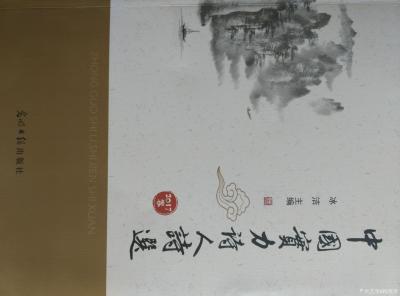 中國實力诗人詩選
2017
卷
冰洁 主编
ZHONG GUO SHI LI SHI REN SHI XUAN
光明日报出版社